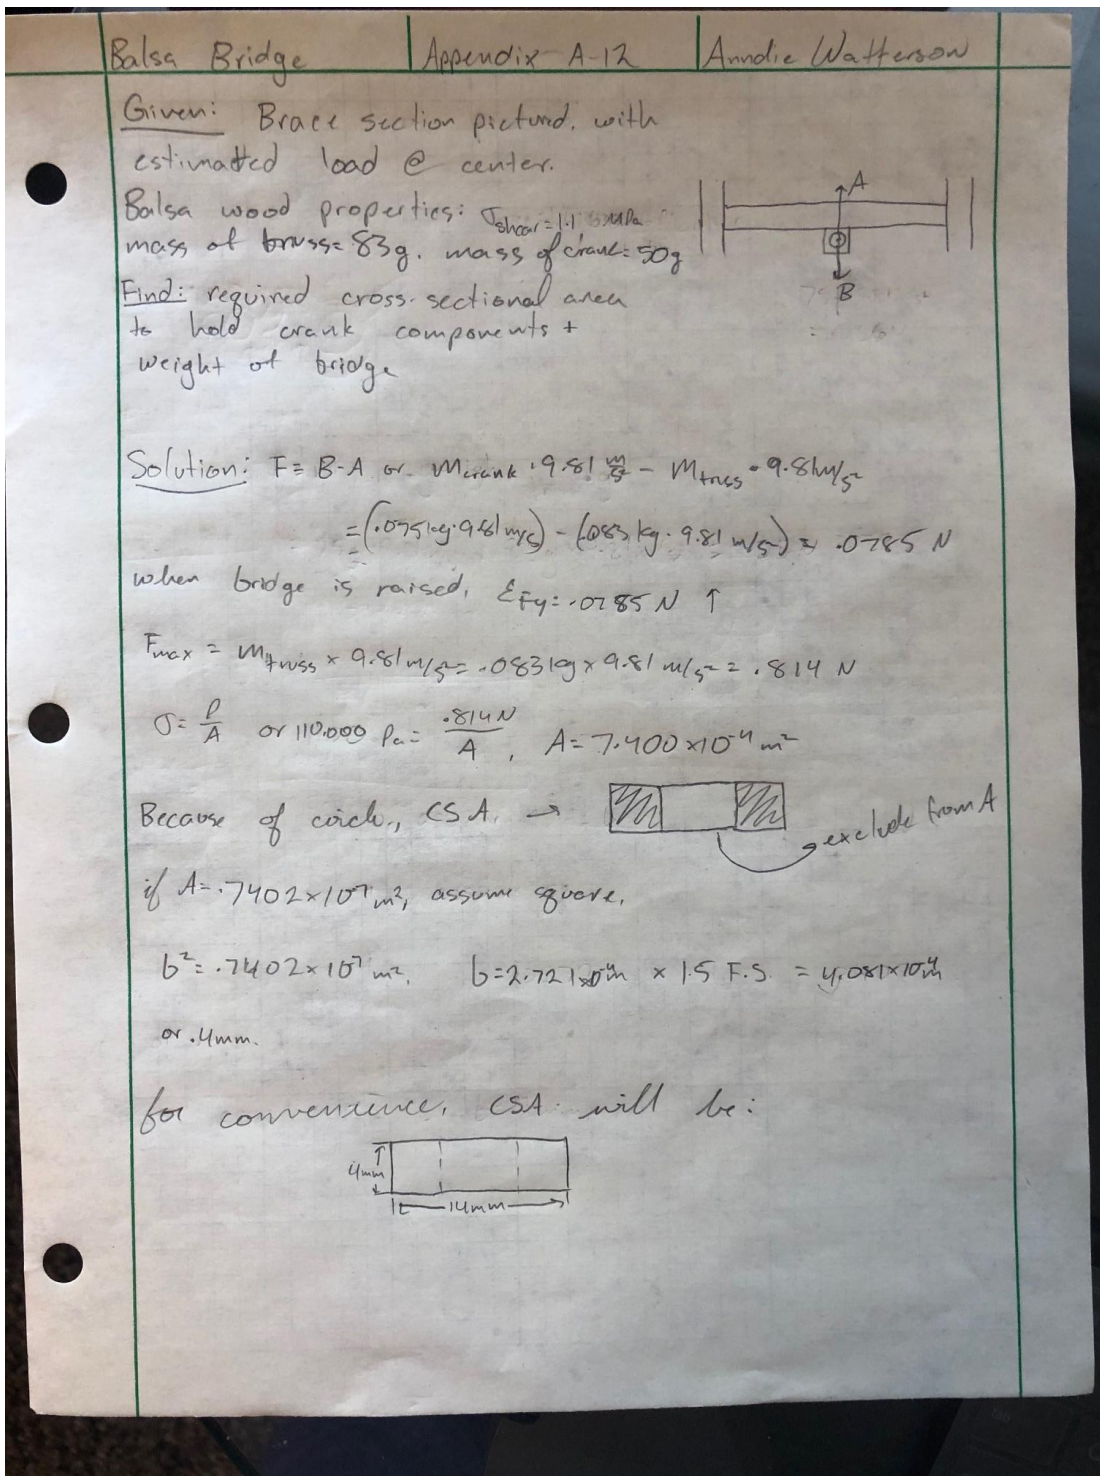 Balsa Bridge Appendix A-12 Anndie Watterson
Given: Brace section pictured, with
estimatted load @ center.
Balsa wood properties: σshear = 1.1 MPa
mass of truss = 83g. mass of crank = 50g
A
B
Find: required cross-sectional area
to hold crank components +
weight of bridge
Solution: F = B-A or Mcrank · 9.81 m/s² - Mtruss · 9.81 m/s²
= (.075 kg · 9.81 m/s) - (.083 kg · 9.81 m/s²) = .0785 N
when bridge is raised, ΣFy = .0785 N ↑
Fmax = Mtruss × 9.81 m/s² = .083 kg × 9.81 m/s² = .814 N
σ = P/A or 110,000 Pa = .814N/A, A = 7.400 × 10⁻⁴ m²
Because of circle, CSA. →
exclude from A
if A = .7402 × 10⁻⁷ m², assume square.
b² = .7402 × 10⁻⁷ m², b = 2.721 × 10⁻⁴ m × 1.5 F.S. = 4.081 × 10⁻⁴ m
or .4mm.
for convenience, CSA will be:
4mm
14mm